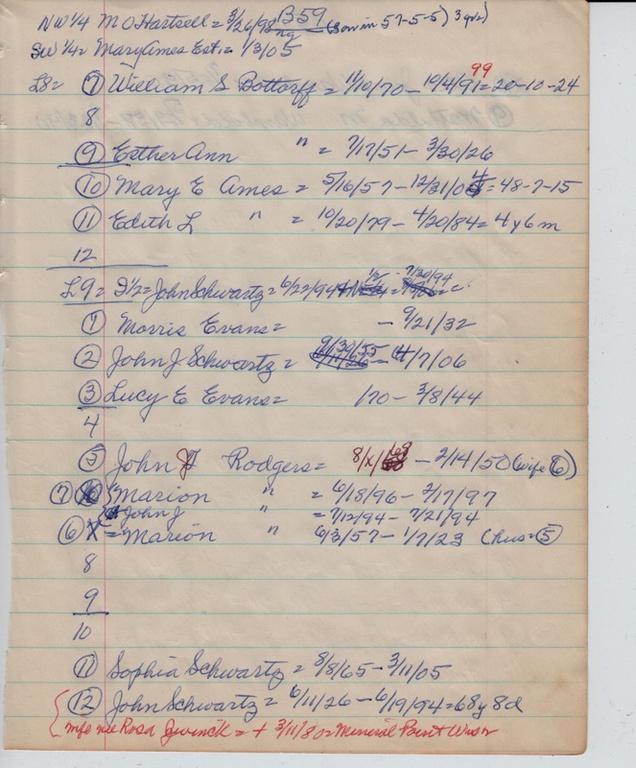 NW 1/4 M O Hartsell = 3/26/98 B59 (Son in 57-5-5) 3 grs)
SW 1/4 = Mary Ames Est. = 1/3/05
L8 = (7) William S Bottorff = 11/10/70 - 10/4/91 99 = 20-10-24
8
(9) Esther Ann " = 7/17/51 - 3/30/26
(10) Mary E Ames = 5/16/57 - 12/31/04 = 48-7-15
(11) Edith L " = 10/20/79 - 4/20/84 = 4 y 6 m
12
L9 = S 1/2 = John Schwartz = 6/22/94 7/20/94
(1) Morris Evans = - 9/21/32
(2) John J Schwartz = 9/30/55 - 4/7/06
(3) Lucy E Evans = /70 - 3/8/44
4
(5) John J Rodgers = 8/x/69 - 2/14/50 (wife (6))
(7) Marion " = 6/18/96 - 2/17/97
John J " = 7/12/94 - 7/21/94
(6) X = Marion " 6/3/57 - 1/7/23 (hus = (5)
8
9
10
(11) Sophia Schwartz = 8/8/65 - 3/11/05
(12) John Schwartz = 6/11/26 - 6/19/94 = 68 y 8 d
nee Rosa = + 3/11/80 = Mineral Point Wisn